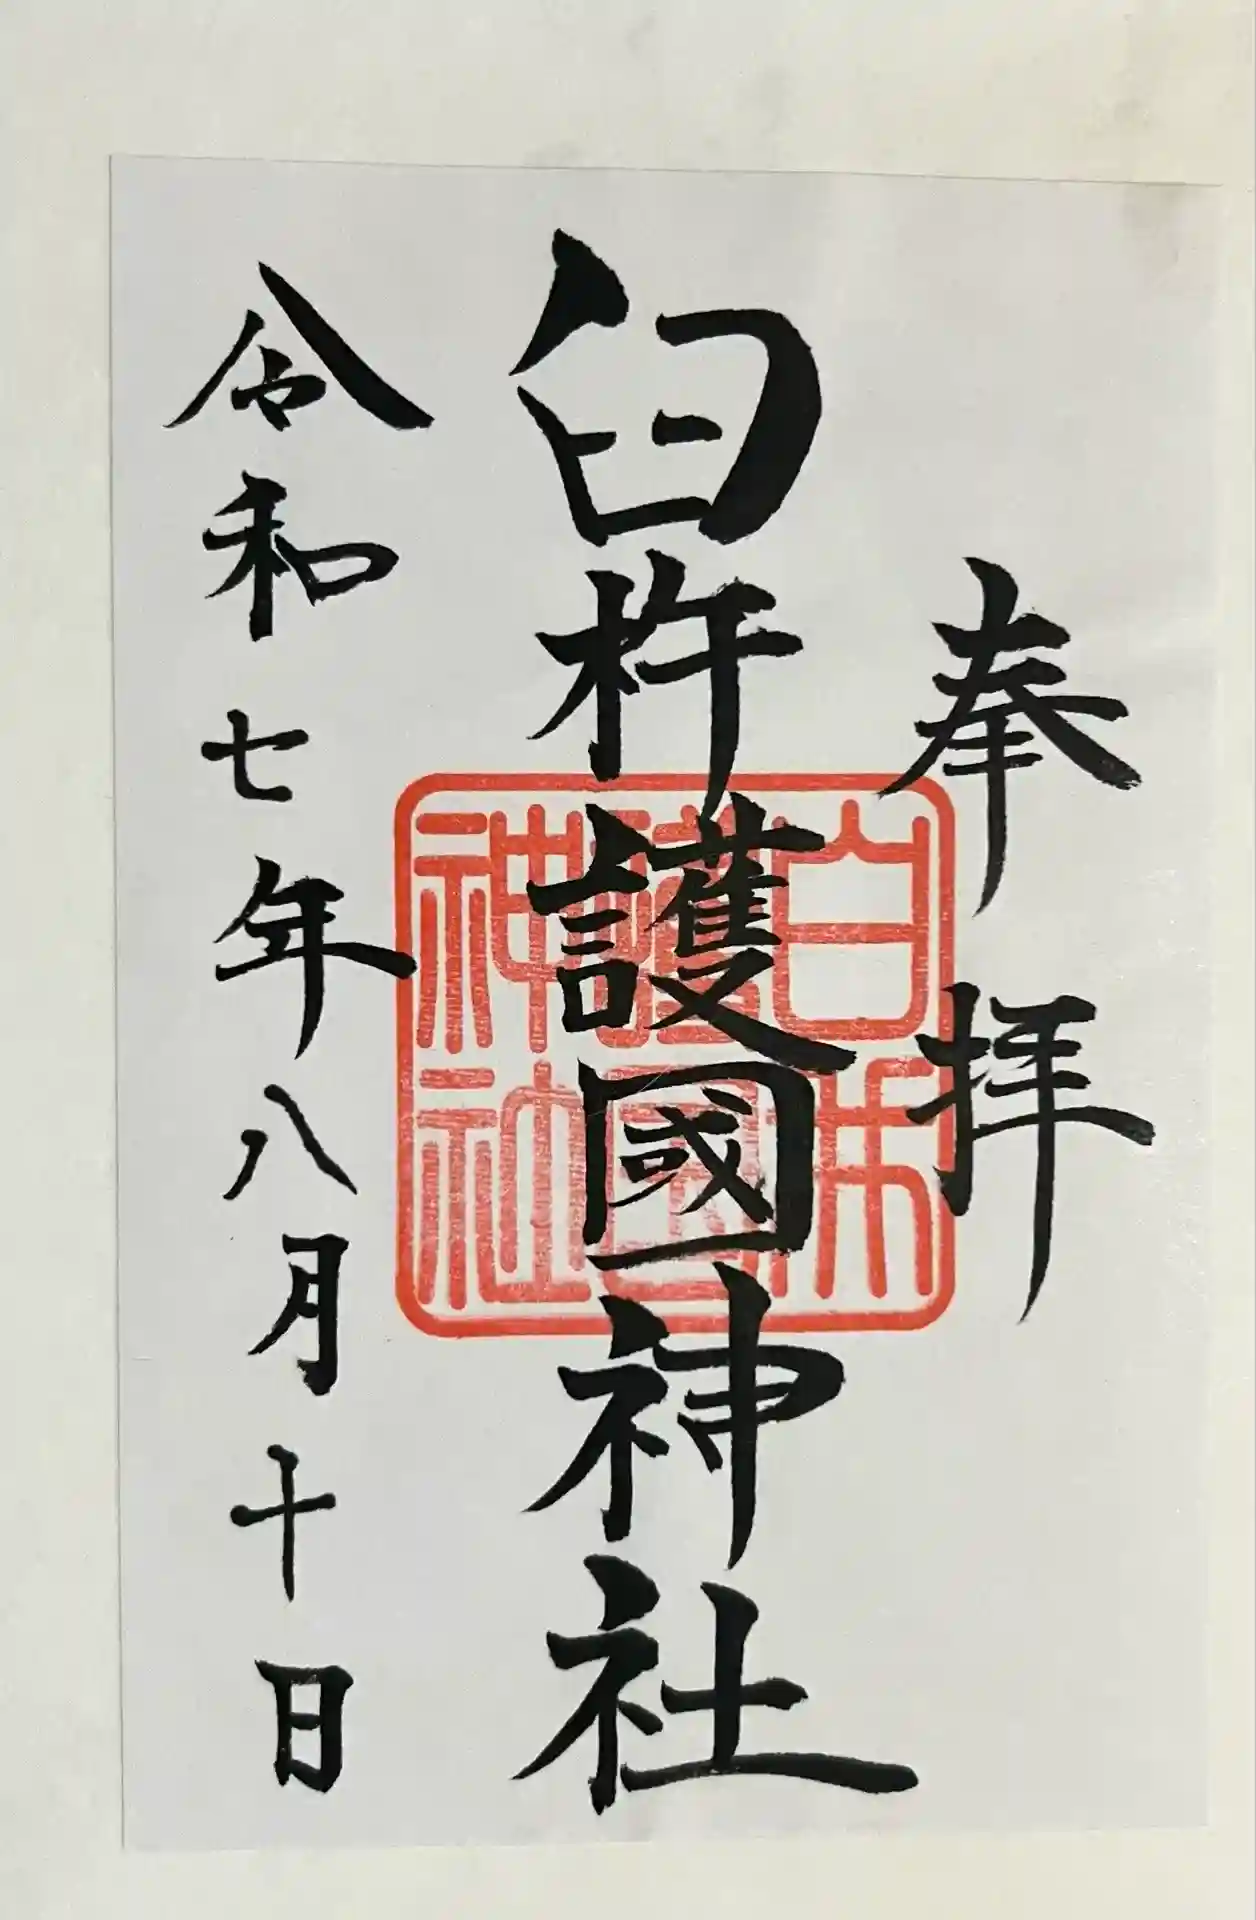 奉拝
臼杵護國神社
臼杵
護国
神社
令和七年八月十日